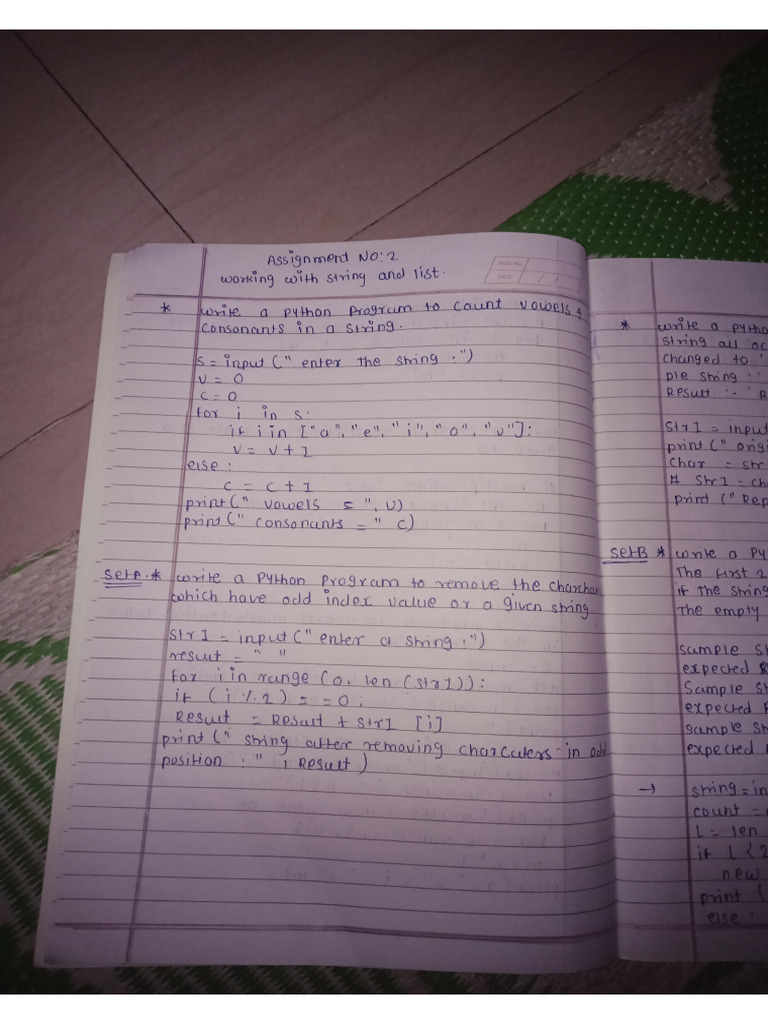 Assignment NO:2
working with string and list.
PAGE NO.
DATE / /
* write a Python Program to count vowels &
consonants in a string.
s = input (" enter the string :")
v = 0
c = 0
for i in s:
if i in ["a", "e", "i", "o", "u"]:
v = v + 1
else :
c = c + 1
print (" vowels = ", v)
print (" consonants = " c)
SetA. * write a Python Program to remove the
which have odd index value or a given string
str1 = input (" enter a string :")
result = " "
for i in range (0, len (str1)):
if (i % 2) = = 0 ;
Result = Result + str1 [i]
print (" string after removing in odd
position : " , Result )
* write a
string all
changed to '
ple string : '
Result :- '
str1 = input
print ("
char = str
# str1 =
print ("Rep
SetB * write a
The first 2
if the string
The empty
sample
expected
Sample
expected
sample
expected
→ string =
count =
L = len
if L < 2
new
print (
else :